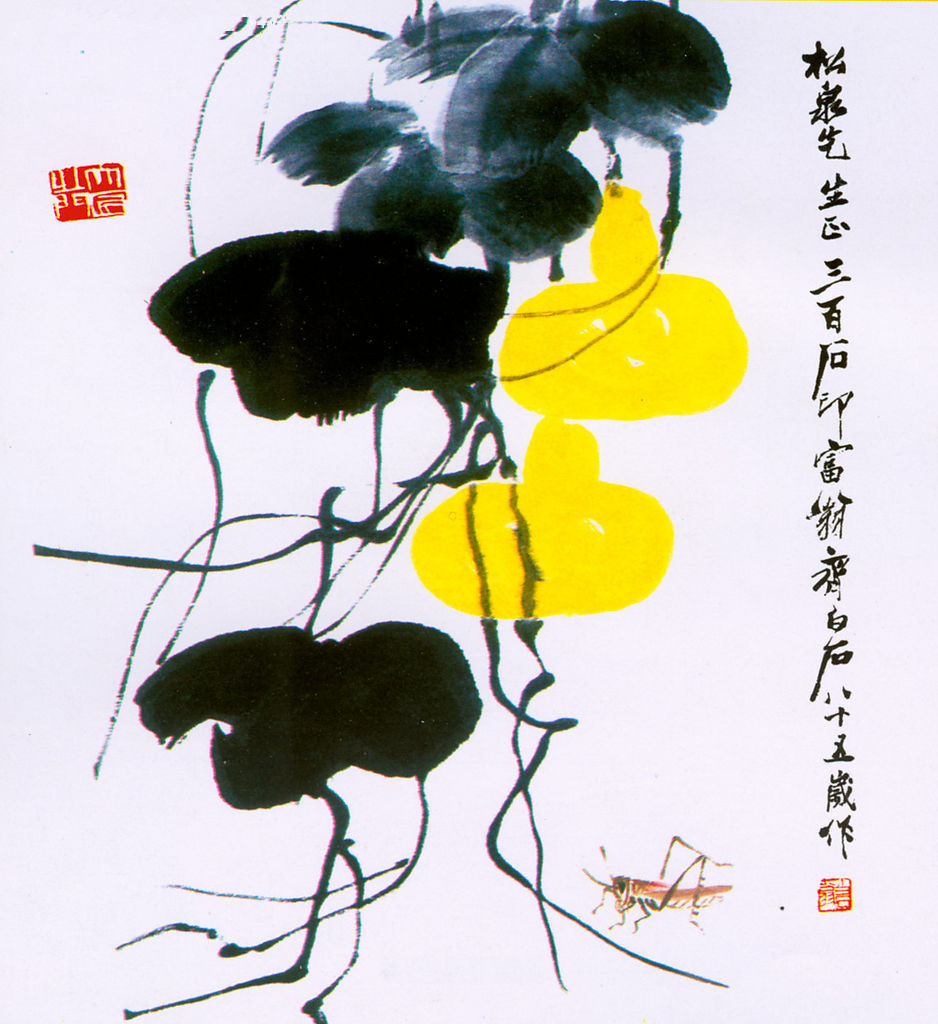 松泉先生正三百石印富翁齊白石八十五歲作